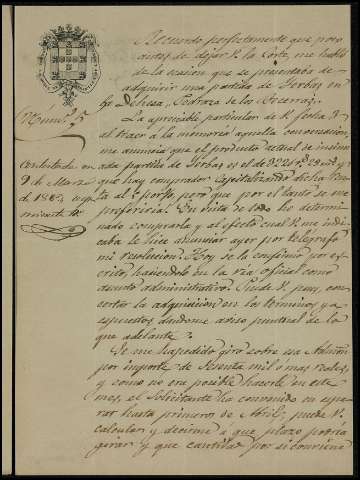 Recuerdo perfectamente que poco
antes de dejar V. la Corte, me habló
de la ocasion que se presentaba de
adquirir una partida de Yerbas en
la Dehesa, Pedraza de los Becerros.
Núm.º 25
La apreciable particular de V. fecha 3
al traer a la memoria aquella conversacion,
me anuncia que el producto actual de
ada partida de Yerbas es el de
que hay comprador capitalizando dicha
ta al 4 por % pero que por el tanto se me
preferiria. En vista de todo he determi-
nado comprarla y al efecto cual V. me indi-
caba le hice anunciar ayer por telegrafo
mi resolucion. Hoy se la confirmo por es-
crito, haciendolo en la via oficial como
asunto administrativo. Puede V. pues, con-
certar la adquisicion en los términos ya
espuestos dandome aviso puntual de lo
que adelante.
Contestada en
9 de Marzo
de 186
Se me ha pedido giro sobre esa Admon
por importe de sesenta mil o mas reales,
y como no era posible hacerlo en este
mes, el solicitante ha convenido en espe-
rar hasta primeros de Abril, puede V.
calcular y decirme á que plazo podria
girar y que cantidad por si conviene